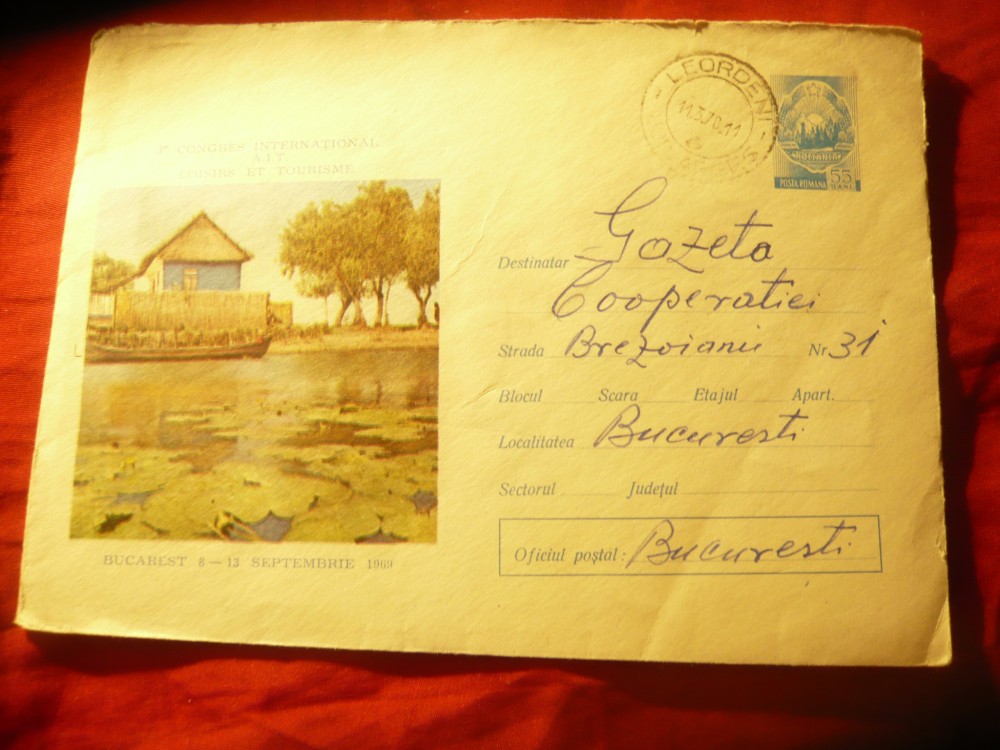 CONGRES INTERNAȚIONAL
A.I.T.
LOISIRS ET TOURISME
BUCAREST 8 — 13 SEPTEMBRIE 1969
LEORDENI
11.3.70.11
POSTA ROMANA 55
BANI
Destinatar Gazeta
Cooperatiei
Strada Brezoianu Nr 31
Blocul Scara Etajul Apart.
Localitatea Bucuresti
Sectorul Județul
Oficiul poștal: Bucuresti